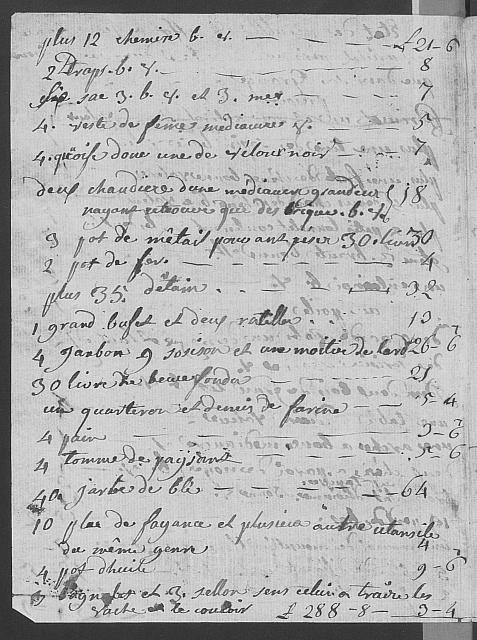 plus 12 chemire b. et. — — — £ 21-6
2 Draps. b. et. — — — 8
six sac 3. b. et. et 3. me — — 7
4. veste de fêmes mediaucres — 5
4. doue une de vélour noir — 7
deux chaudiere dune mediaucre grandeur
nayant retrouvé que des brique. b. et. } 18
3 pot de mêtail pouvant peser 30. livre 30
2 pot de fer. — — — 4
plus 35. détain — — — 32
1 grand bufet et deux ratellier . . 13
4 Janbon 9 sosison et une moitié de lard 26-6
30 livre de beure fondu — — 21
un quarteron et demis de farine — 5-4
4 pain — — — 3-6
4 tomme de paysant — — -6
40. jarbe de blé — — — 64
10 plat de fayance et plusieur autre utansile
du même genre 4
4 pot dhuile 9-6
3 et 3. sellon sens celui a traire les
vache et le couloir £ 288-8- 3-4